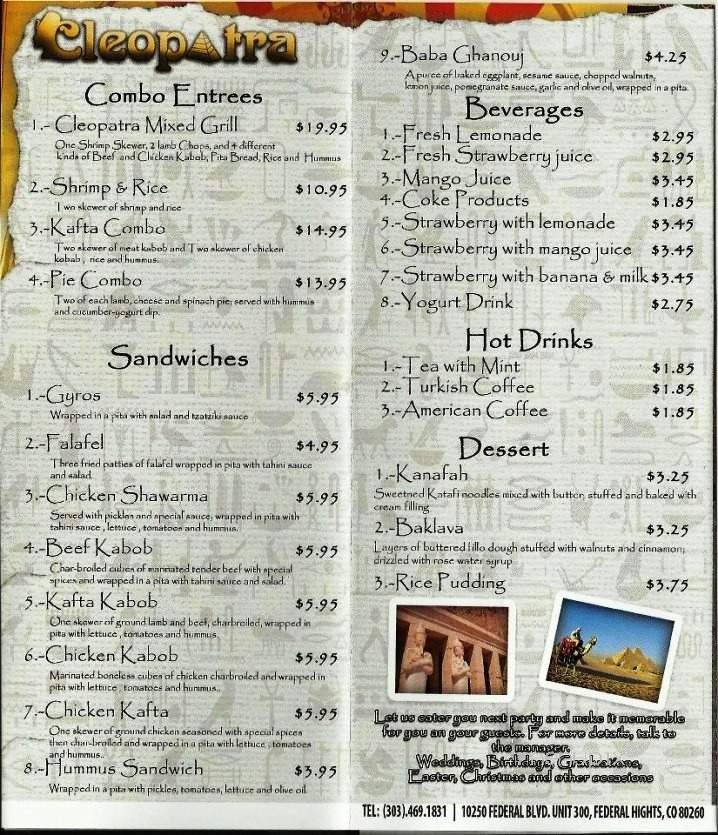 Cleopatra
Combo Entrees
1.- Cleopatra Mixed Grill $19.95
One Shrimp Skewer, 2 lamb Chops, and 4 different
kinds of Beef and Chicken Kabob, Pita Bread, Rice and Hummus
2.-Shrimp & Rice $10.95
Two skewer of shrimp and rice
3.-Kafta Combo $14.95
Two skewer of meat kabob and Two skewer of chicken
kobab, rice and hummus.
4.-Pie Combo $13.95
Two of each lamb, cheese and spinach pie, served with hummus
and cucumber-yogurt dip.
Sandwiches
1.-Gyros $5.95
Wrapped in a pita with salad and tzatziki sauce
2.-Falafel $4.95
Three fried patties of falafel wrapped in pita with tahini sauce
and salad.
3.-Chicken Shawarma $5.95
Served with pickles and special sauce, wrapped in pita with
tahini sauce, lettuce, tomatoes and hummus.
4.-Beef Kabob $5.95
Char-broiled cubes of marinated tender beef with special
spices and wrapped in a pita with tahini sauce and salad.
5.-Kafta Kabob $5.95
One skewer of ground lamb and beef, charbroiled, wrapped in
pita with lettuce, tomatoes and hummus.
6.-Chicken Kabob $5.95
Marinated boneless cubes of chicken charbroiled and wrapped in
pita with lettuce, tomatoes and hummus..
7.-Chicken Kafta $5.95
One skewer of ground chicken seasoned with special spices
then char-broiled and wrapped in a pita with lettuce, tomatoes
and hummus..
8.-Hummus Sandwich $3.95
Wrapped in a pita with pickles, tomatoes, lettuce and olive oil.
9.-Baba Ghanouj $4.25
A puree of baked eggplant, sesame sauce, chopped walnuts,
lemon juice, pomegranate sauce, garlic and olive oil, wrapped in a pita.
Beverages
1.-Fresh Lemonade $2.95
2.-Fresh Strawberry juice $2.95
3.-Mango Juice $3.45
4.-Coke Products $1.85
5.-Strawberry with lemonade $3.45
6.-Strawberry with mango juice $3.45
7.-Strawberry with banana & milk $3.45
8.-Yogurt Drink $2.75
Hot Drinks
1.-Tea with Mint $1.85
2.-Turkish Coffee $1.85
3.-American Coffee $1.85
Dessert
1.-Kanafah $3.25
Sweetned Katafi noodles mixed with butter, stuffed and baked with
cream filling
2.-Baklava $3.25
Layers of buttered fillo dough stuffed with walnuts and cinnamon;
drizzled with rose water syrup
3.-Rice Pudding $3.75
Let us cater you next party and make it memorable
for you an your guests. For more details, talk to
the manager.
Weddings, Birthdays, Graduations,
Easter, Christmas and other occasions
TEL: (303).469.1831 | 10250 FEDERAL BLVD. UNIT 300, FEDERAL HIGHTS, CO 80260